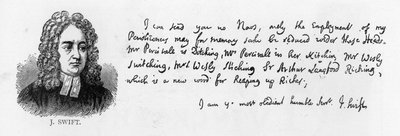 I can send you no News, only the Employment of my
Parishioners may for memory sake be reduced under these Heads.
Mr Percivale is Ditching, Mrs Percivale in her Kitchin, Mr Wesly
switching, Mrs Wesly stitching, Sir Arthur Langford Riching,
which is a new word for heaping up Riches;
I am yr most obedient humble Servt. J: Swift
J. SWIFT.